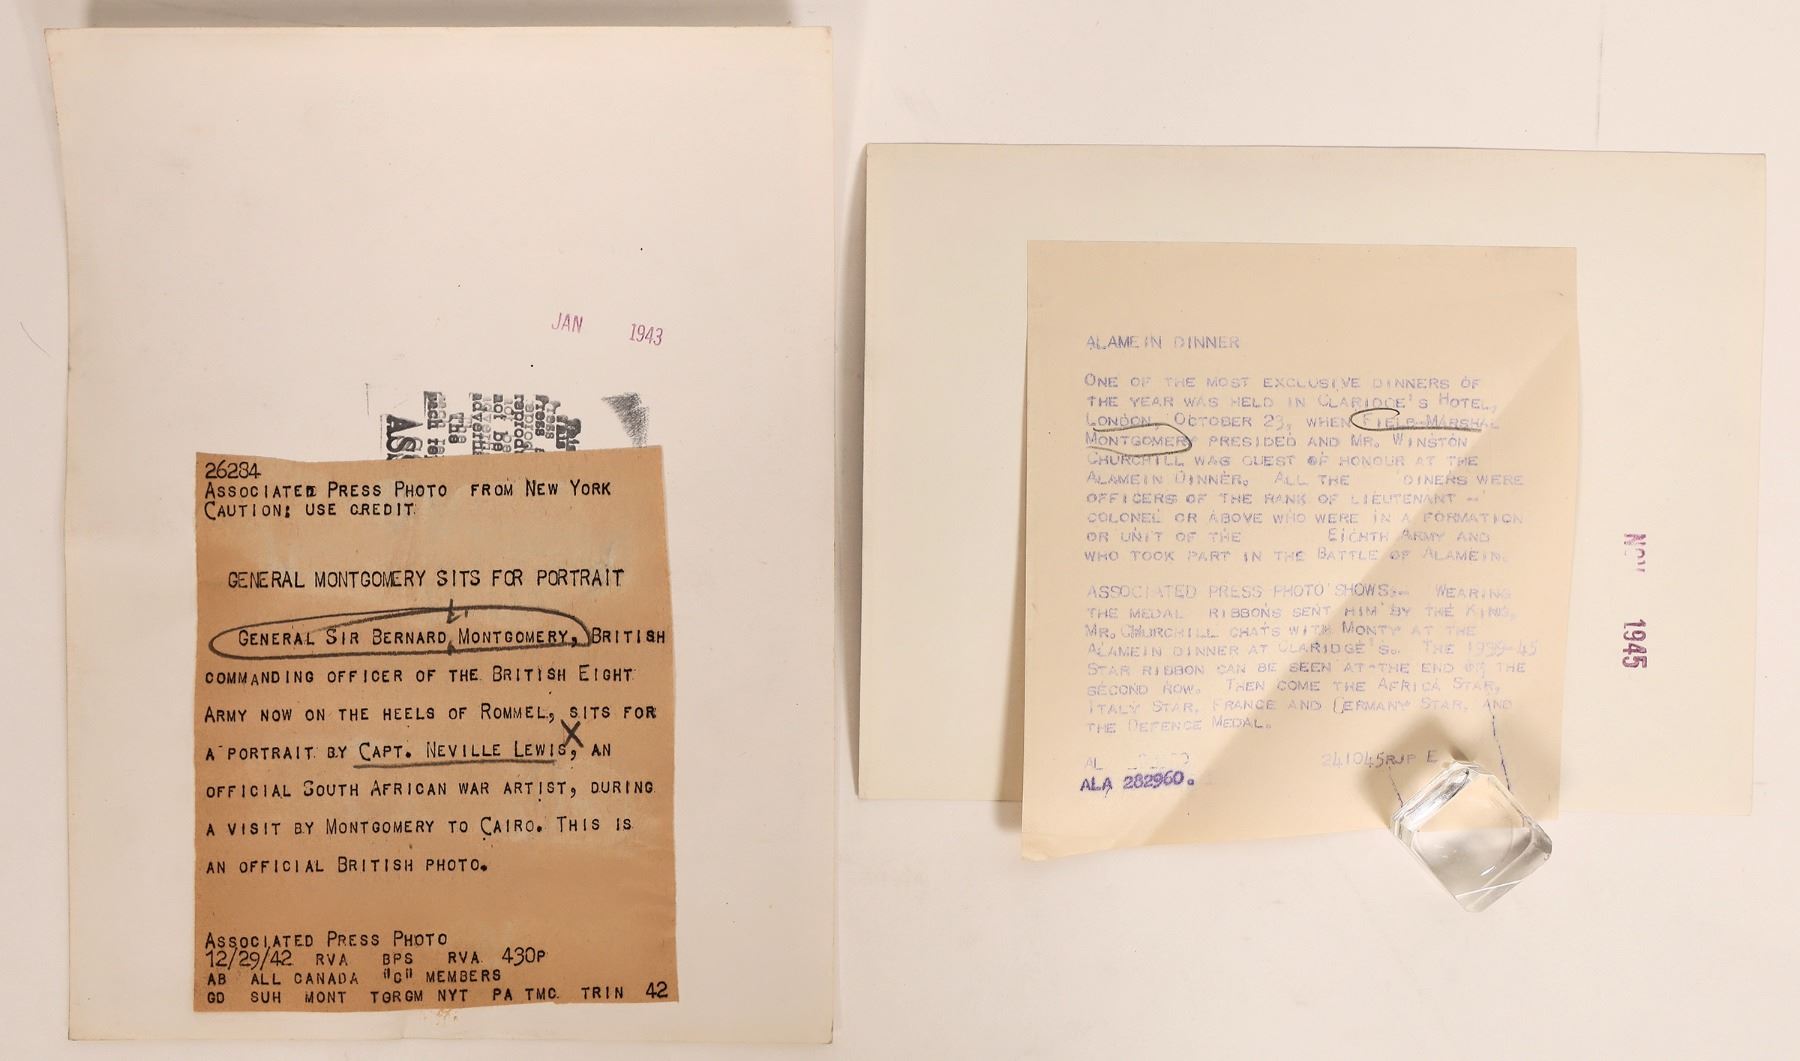 JAN 1943
26284
ASSOCIATED PRESS PHOTO FROM NEW YORK
CAUTION: USE CREDIT
GENERAL MONTGOMERY SITS FOR PORTRAIT
GENERAL SIR BERNARD MONTGOMERY, BRITISH
COMMANDING OFFICER OF THE BRITISH EIGHT
ARMY NOW ON THE HEELS OF ROMMEL, SITS FOR
A PORTRAIT BY CAPT. NEVILLE LEWIS, AN
OFFICIAL SOUTH AFRICAN WAR ARTIST, DURING
A VISIT BY MONTGOMERY TO CAIRO. THIS IS
AN OFFICIAL BRITISH PHOTO.
ASSOCIATED PRESS PHOTO
12/29/42 RVA BPS RVA 430P
AB ALL CANADA "G" MEMBERS
GD SUH MONT TGRGM NYT PA TMC TRIN 42
ALAMEIN DINNER
ONE OF THE MOST EXCLUSIVE DINNERS OF
THE YEAR WAS HELD IN CLARIDGE'S HOTEL,
LONDON, OCTOBER 23, WHEN FIELD-MARSHAL
MONTGOMERY PRESIDED AND MR. WINSTON
CHURCHILL WAS GUEST OF HONOUR AT THE
ALAMEIN DINNER. ALL THE DINERS WERE
OFFICERS OF THE RANK OF LIEUTENANT -
COLONEL OR ABOVE WHO WERE IN A FORMATION
OR UNIT OF THE EIGHTH ARMY AND
WHO TOOK PART IN THE BATTLE OF ALAMEIN.
ASSOCIATED PRESS PHOTO SHOWS:- WEARING
THE MEDAL RIBBONS SENT HIM BY THE KING,
MR. CHURCHILL CHATS WITH MONTY AT THE
ALAMEIN DINNER AT CLARIDGE'S. THE 1939-45
STAR RIBBON CAN BE SEEN AT THE END OF THE
SECOND ROW. THEN COME THE AFRICA STAR,
ITALY STAR, FRANCE AND GERMANY STAR, AND
THE DEFENCE MEDAL.
AL 241045RJP E
ALA 282960.
NOV 1945